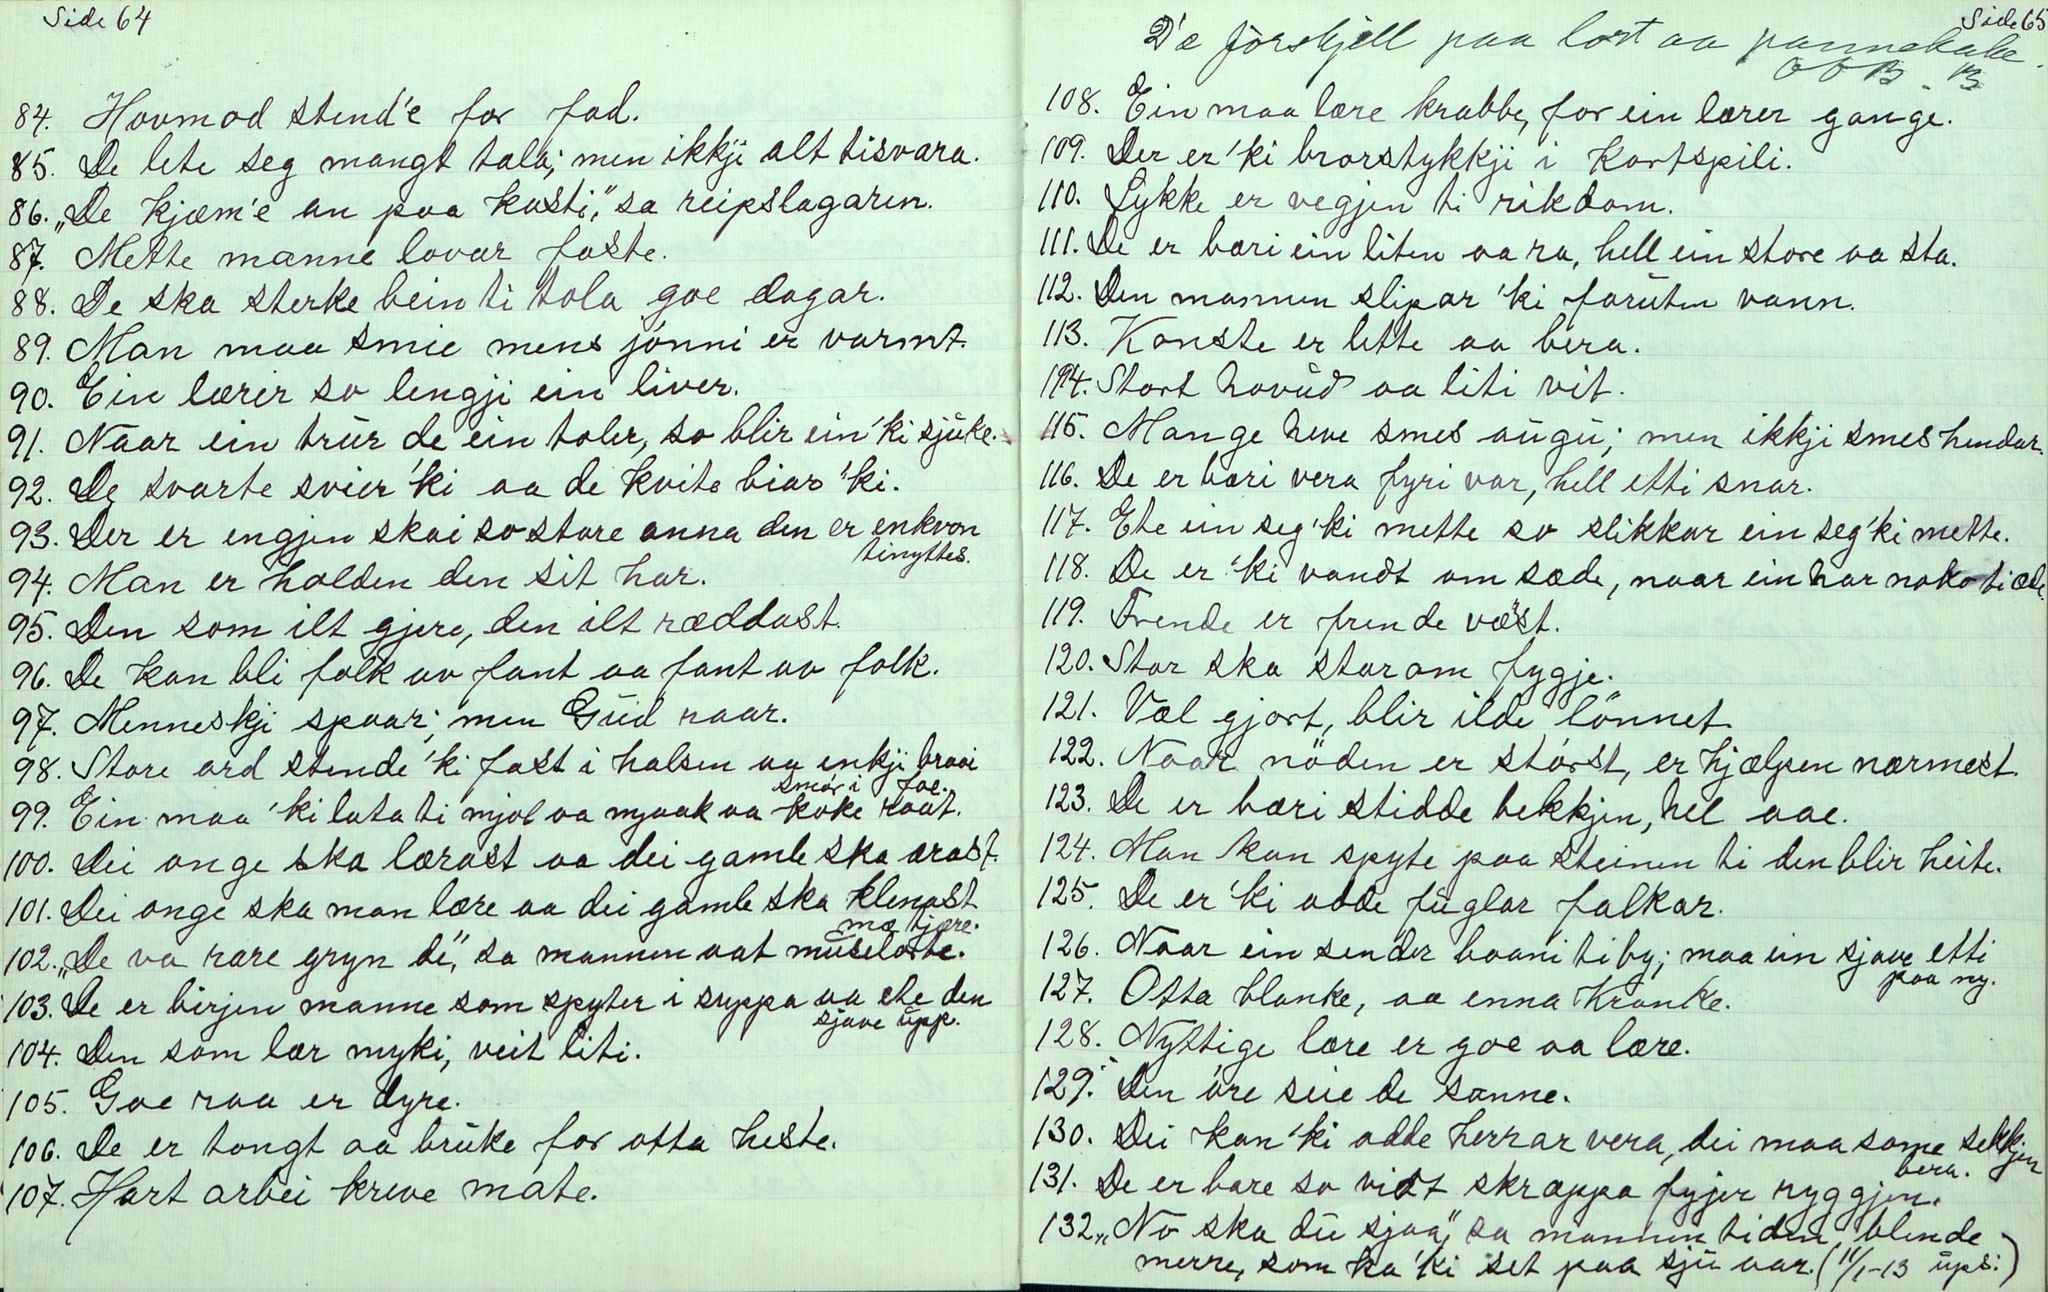 Side 64
84. Hovmod stend'e for fad.
85. De lete seg mangt tala; men ikkji alt tisvara.
86. „De kjæm'e an paa kasti," sa reipslagaren.
87. Mette manne lovar faste.
88. De ska sterke bein ti tola goe dagar.
89. Man maa smie mens jónni er varmt.
90. Ein lærer so lengji ein liver.
91. Naar ein trŭr de ein toler, so blir ein'ki sjŭke.
92. De svarte svier'ki aa de kvite biar'ki.
93. Der er engjen skai so stare anna den er enkvon
tinyttes.
94. Man er halden den sit har.
95. Den som ilt gjere, den ilt ræddast.
96. De kan bli folk av fant aa fant av folk.
97. Menneskji spaar; men Gŭd raar.
98. Store ord stende'ki fast i halsen aa enkji braai
smór i foe.
99. Ein maa'ki lata ti mjøl aa mjaak aa koke raat.
100. Dei onge ska lærast aa dei gamle ska ærast.
101. Dei onge ska man lære aa dei gamle ska klenast
mæ tjære.
102. „De va rare gryn de", sa mannen aat mŭselorte.
103. De er birjen manne som spyter i suppa aa ete den
sjave ŭpp.
104. Den som lær myki, veit liti.
105. Goe raa er dyre.
106. De er tongt aa brŭke for otta heste.
107. Hart arbei kreve mate.
Side 65
D'æ forskjell paa lort aa pannekake.
O O B. B
108. Ein maa lære krabbe, for ein lærer gange.
109. Der er'ki brorstykkji i Kortspili.
110. Lykke er vegjen ti rikdom.
111. De er bæri ein liten aa ra, hell ein store aa sta.
112. Den mannen slipar'ki forŭten vann.
113. Konste er lette aa bera.
114. Stort hovŭd aa liti vit.
115. Mange heve smes aŭgŭ; men ikkji smes hendar.
116. De er bæri vera fyri var, hell etti snar.
117. Ete ein seg'ki mette so slikkar ein seg'ki mette.
118. De er'ki vandt om sæde, naar ein har noko ti æde.
119. Frende er frende væst.
120. Stor ska star om fygje.
121. Væl gjort, blir ilde lönnet.
122. Naar nöden er stórst, er hjælpen nærmest.
123. De er bæri stidde bekkjen, hel aae.
124. Man kan spyte paa steinen ti den blir heite.
125. De er'ki adde fŭglar falkar.
126. Naar ein sender baani ti by; maa ein sjave etti
paa ny.
127. Otta blanke, aa enna kranke.
128. Nyttige lære er goe aa lære.
129. Den óre seie de sanne.
130. Dei kan'ki adde herrar vera, dei maa some sekkjen
bera.
131. De er bare so vidt skræppa fyjer ryggjen.
132. „No ska dŭ sjaa," sa mannen ti den blende
merre, som ha'ki set paa sjŭ aar. (11/1-13 ŭps.)